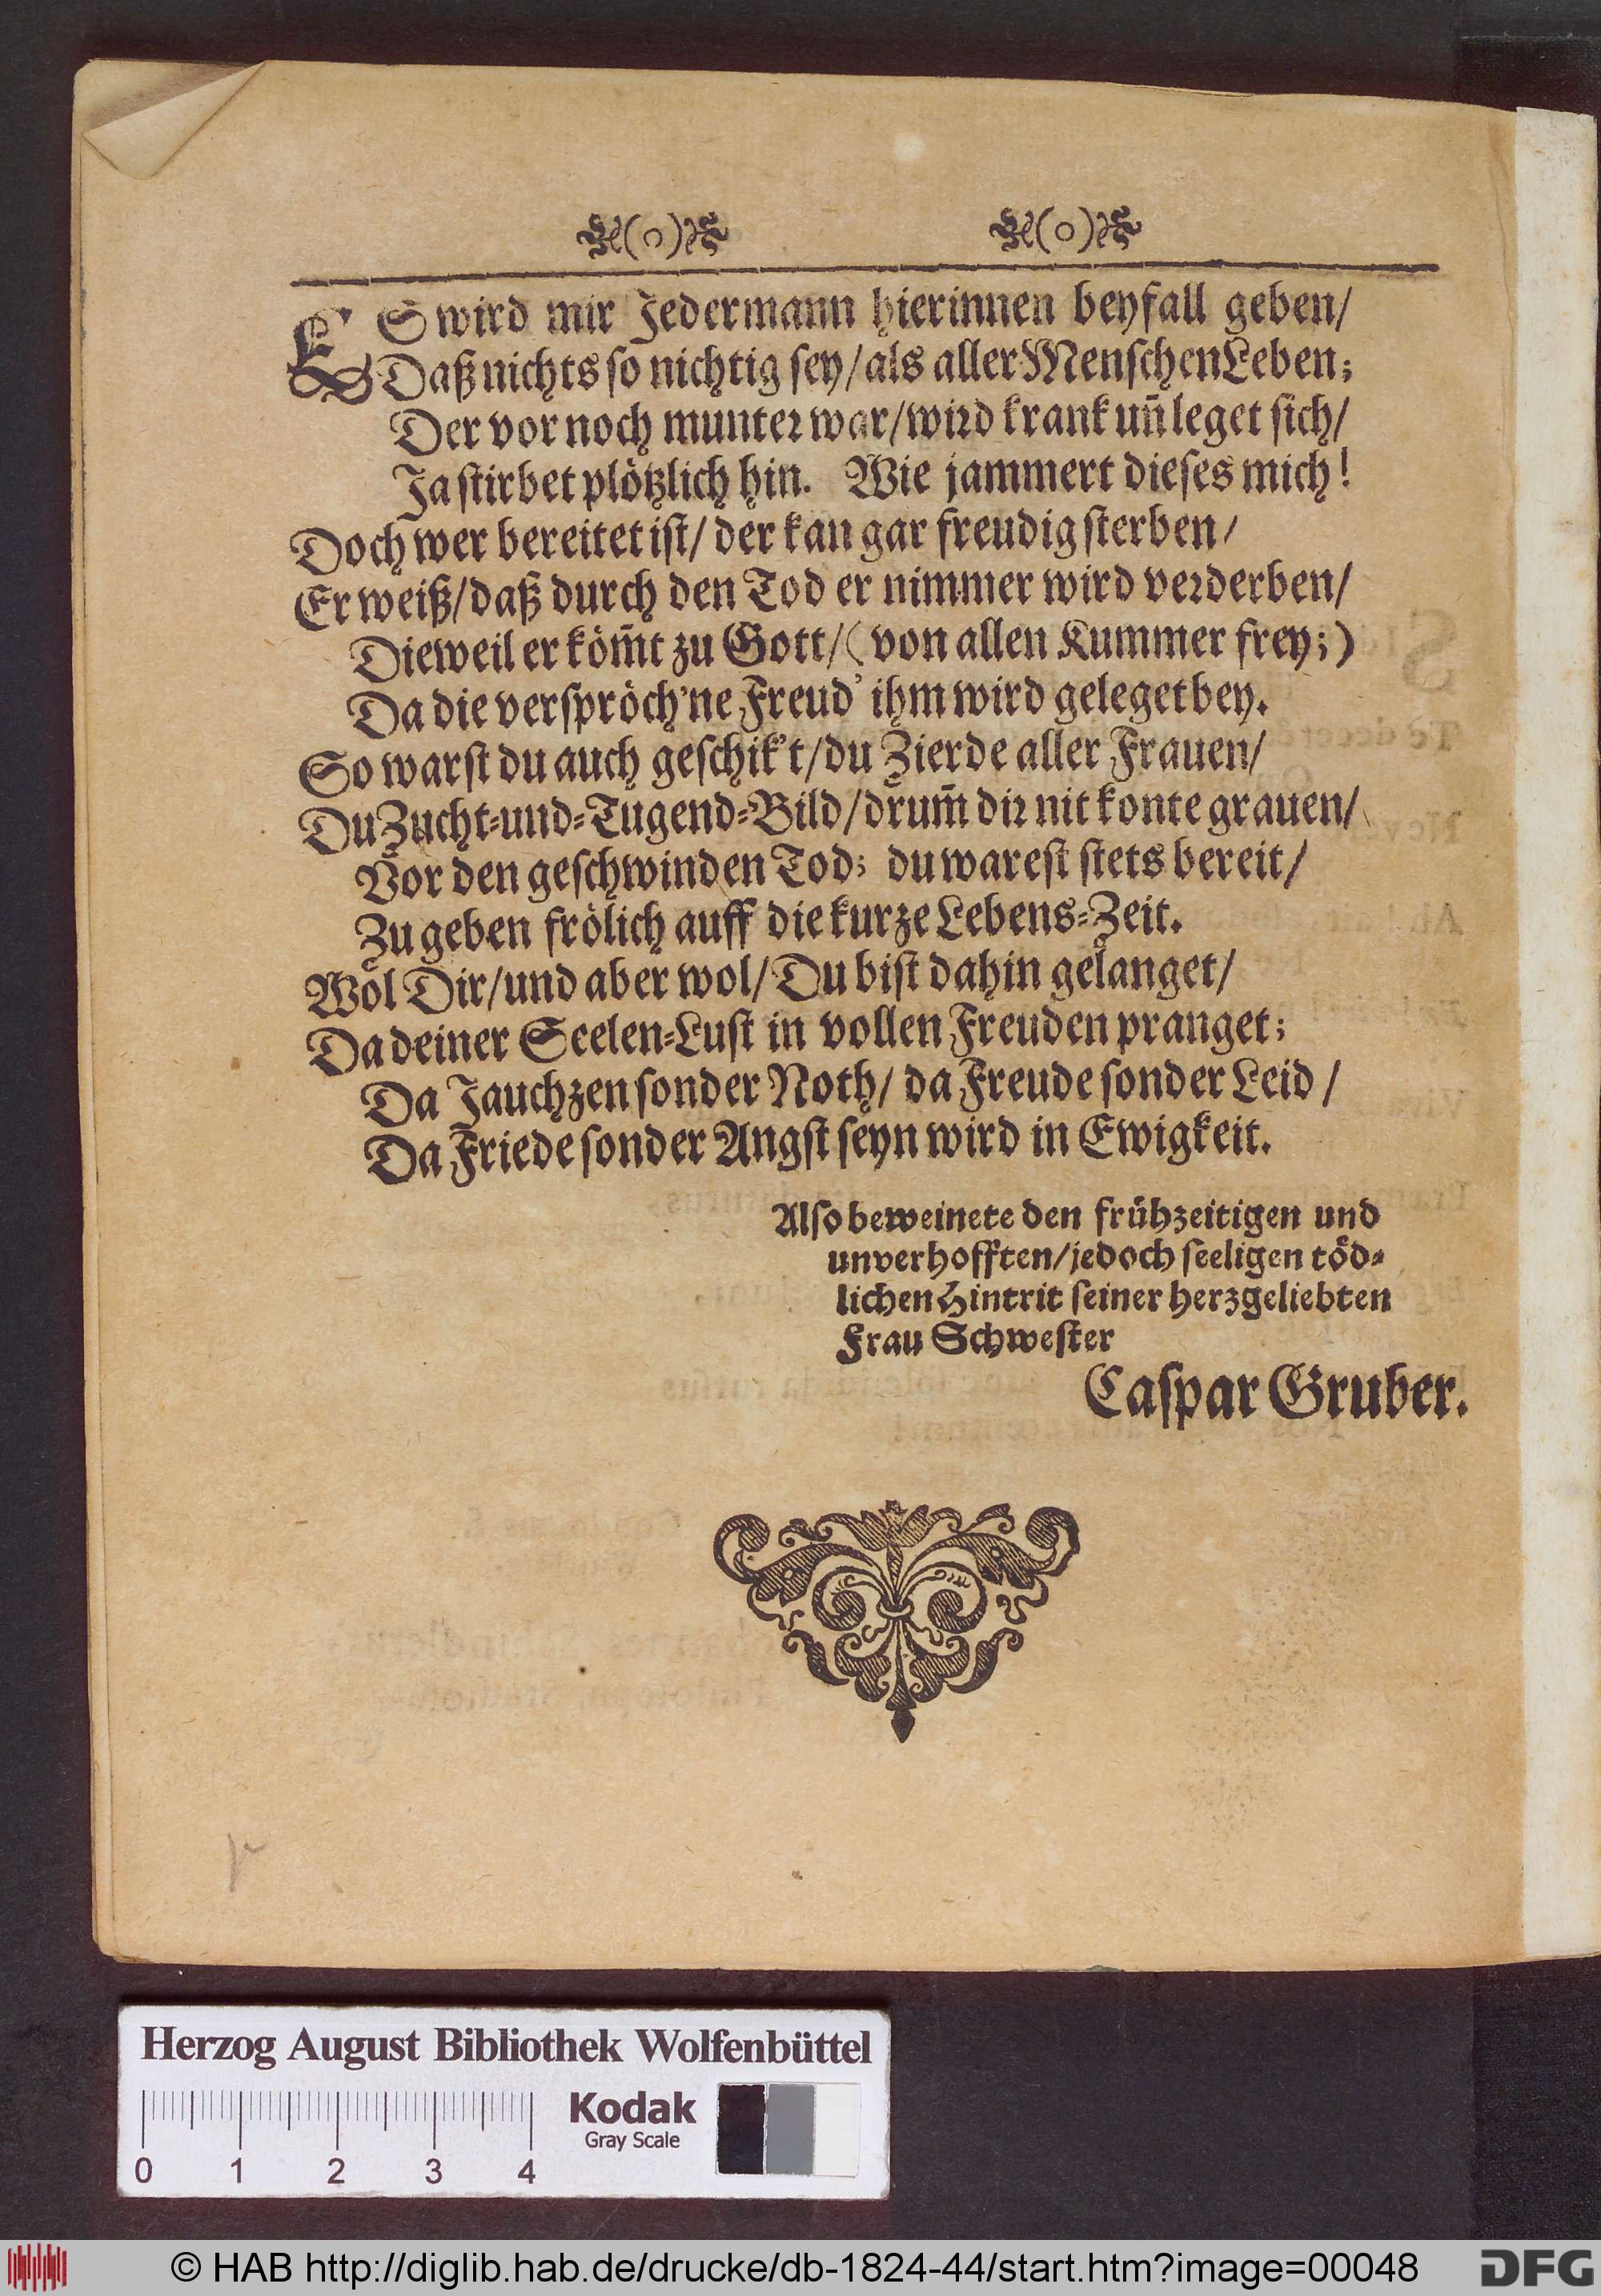 (o) (o)
ES wird mir Jedermann hierinnen beyfall geben/
Daß nichts so nichtig sey/ als aller Menschen Leben;
Der vor noch munter war/ wird krank uñ leget sich/
Ja stirbet plötzlich hin. Wie jammert dieses mich!
Doch wer bereitet ist/ der kan gar freudig sterben/
Er weiß/ daß durch den Tod er nimmer wird verderben/
Dieweil er köm̃t zu Gott/ (von allen Kummer frey;)
Da die verspröch'ne Freud' ihm wird geleget bey.
So warst du auch geschik't/ du Zierde aller Frauen/
Du Zucht-und-Tugend-Bild/ drum̃ dir nit konte grauen/
Vor den geschwinden Tod; du warest stets bereit/
Zu geben frölich auff die kurze Lebens-Zeit.
Wol Dir/ und aber wol/ Du bist dahin gelanget/
Da deiner Seelen-Lust in vollen Freuden pranget;
Da Jauchzen sonder Noth/ da Freude sonder Leid/
Da Friede sonder Angst seyn wird in Ewigkeit.
Also beweinete den frühzeitigen und
unverhofften/ jedoch seeligen töd-
lichen Hintrit seiner herzgeliebten
Frau Schwester
Caspar Gruber.
Herzog August Bibliothek Wolfenbüttel
Kodak
Gray Scale
0 1 2 3 4
© HAB http://diglib.hab.de/drucke/db-1824-44/start.htm?image=00048
DFG